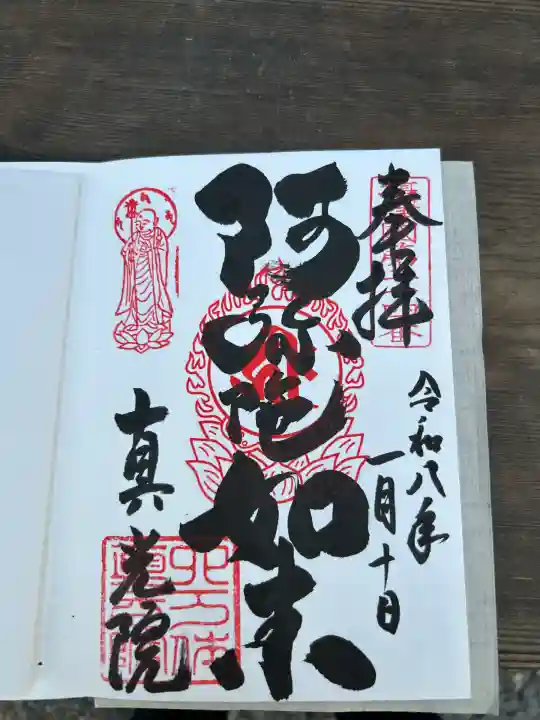 奉拝
令和八年
一月十日
阿弥陀如来
真光院